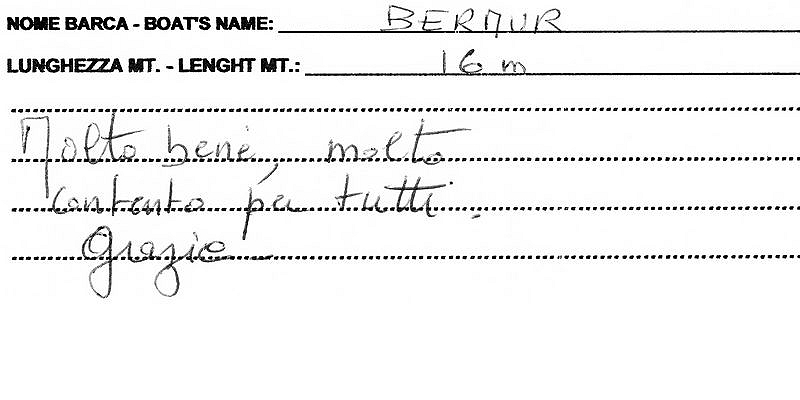 NOME BARCA - BOAT'S NAME: BERMUR
LUNGHEZZA MT. - LENGHT MT.: 16 m
Molto bene, molto
contento per tutti.
Grazie